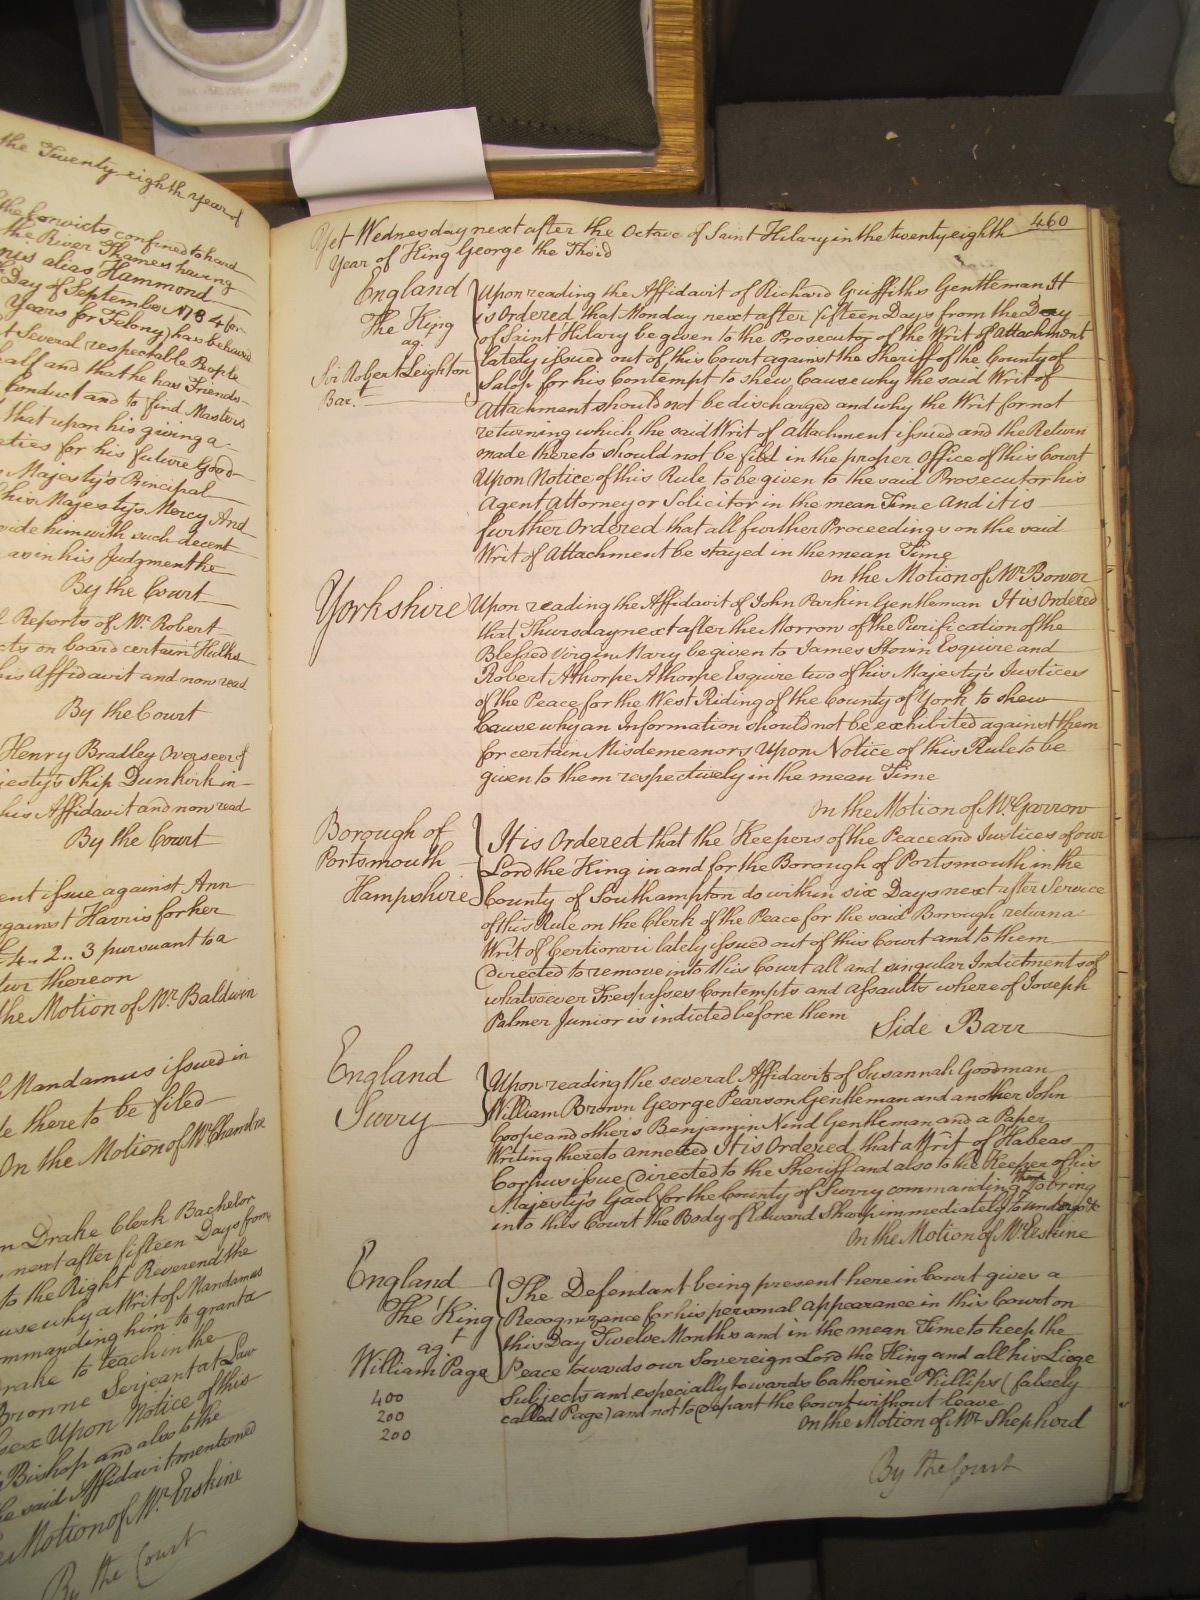 the Twenty eighth year of
the Convicts confined to hard
the River Thames having
alias Hammond
Day of September 1784 for
Years for Felony) has behaved
Several respectable People
half and that he has Friends
Conduct and to find Masters
that upon his giving a
for his future Good
Majesty's Principal
his Majesty's Mercy And
him with such decent
as in his Judgment he
By the Court
Reports of Mr. Robert
on board certain Hulks
his Affidavit and now read
By the Court
Henry Bradley Overseer of
Ship Dunkirk in
his Affidavit and now read
By the Court
issue against Ann
against Harris for her
4.. 2.. 3 pursuant to a
thereon
the Motion of Mr. Baldwin
Mandamus issued in
there to be filed
On the Motion of Mr. Chambre
Drake Clerk Bachelor
next after fifteen Days from
to the Right Reverend the
why a Writ of Mandamus
commanding him to grant a
Drake to teach in the
Serjeant at Law
Upon Notice of this
Bishop and also to the
the said Affidavit mentioned
Motion of Mr. Erskine
By the Court
460
Yet Wednesday next after the Octave of Saint Hilary in the twenty eighth
Year of King George the Third
England
The King
ag.
Sir Robert Leighton
Bar.t
Upon reading the Affidavit of Richard Griffiths Gentleman It
is Ordered that Monday next after fifteen Days from the Day
of Saint Hilary be given to the Prosecutor of the Writ of Attachment
lately issued out of this Court against the Sheriff of the County of
Salop for his Contempt to shew Cause why the said Writ of
Attachment should not be discharged and why the Writ for not
returning which the said Writ of Attachment issued and the Return
made thereto should not be filed in the proper Office of this Court
Upon Notice of this Rule to be given to the said Prosecutor his
Agent Attorney or Solicitor in the mean Time And it is
further Ordered that all further Proceedings on the said
Writ of Attachment be stayed in the mean Time
On the Motion of Mr. Bower
Yorkshire
Upon reading the Affidavit of John Parkin Gentleman It is Ordered
that Thursday next after the Morrow of the Purification of the
Blessed Virgin Mary be given to James Stovin Esquire and
Robert Athorpe Athorpe Esquire two of his Majesty's Justices
of the Peace for the West Riding of the County of York to shew
Cause why an Information should not be exhibited against them
for certain Misdemeanors Upon Notice of this Rule to be
given to them respectively in the mean Time
On the Motion of Mr. Garrow
Borough of
Portsmouth
Hampshire
It is Ordered that the Keepers of the Peace and Justices of our
Lord the King in and for the Borough of Portsmouth in the
County of Southampton do within six Days next after Service
of this Rule on the Clerk of the Peace for the said Borough return a
Writ of Certiorari lately issued out of this Court and to them
directed to remove into this Court all and singular Indictments of
whatsoever Trespasses Contempts and Assaults where of Joseph
Palmer Junior is indicted before them
Side Barr
England
Surry
Upon reading the several Affidavits of Susannah Goodman
William Brown George Pearson Gentleman and another John
Coope and others Benjamin Nind Gentleman and a Paper
Writing thereto annexed It is Ordered that a Writ of Habeas
Corpus issue directed to the Sheriff and also to the Keeper of his
Majesty's Gaol for the County of Surry commanding them to bring
into this Court the Body of Edward Sharp immediately to undergo &c
On the Motion of Mr. Erskine
England
The King
agt
William Page
400
200
200
The Defendant being present here in Court gives a
Recognizance for his personal appearance in this Court on
this Day Twelve Months and in the mean Time to keep the
Peace towards our Sovereign Lord the King and all his Liege
Subjects and especially towards Catherine Phillips (falsely
called Page) and not to depart the Court without leave
On the Motion of Mr. Shepherd
By the Court